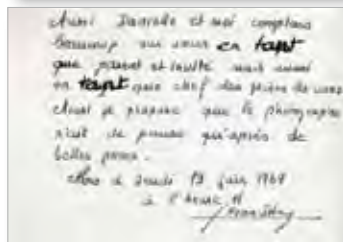 Aussi Danielle et moi comptons
beaucoup sur vous en tant
que parent et invité mais aussi
en tant que chef des prises de vues
Aussi je propose que le photographe
n'ait de pause qu'après de
belles poses.
Alors à Jeudi 13 juin 1967
à l'heure H